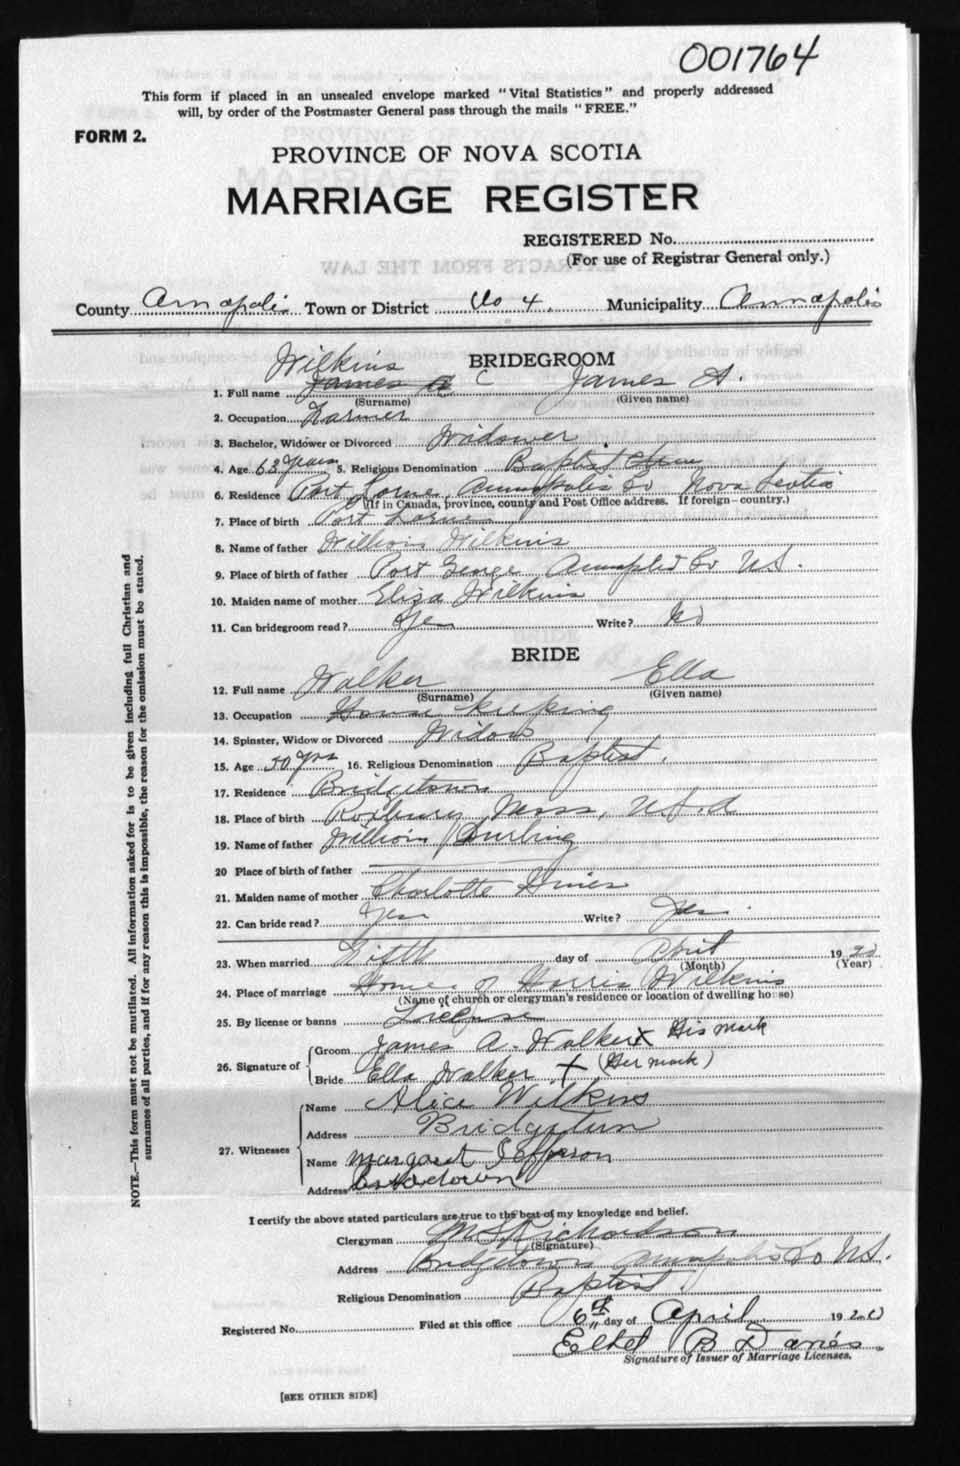 001764
This form if placed in an unsealed envelope marked "Vital Statistics" and properly addressed
will, by order of the Postmaster General pass through the mails "FREE."
FORM 2.
PROVINCE OF NOVA SCOTIA
MARRIAGE REGISTER
REGISTERED No.
(For use of Registrar General only.)
County Annapolis Town or District No 4. Municipality Annapolis
BRIDEGROOM
Wilkins
1. Full name James A C James A.
(Surname) (Given name)
2. Occupation Farmer
3. Bachelor, Widower or Divorced Widower
4. Age 63 years 5. Religious Denomination Baptist
6. Residence Port Lorne, Annapolis Co Nova Scotia
(If in Canada, province, county and Post Office address. If foreign - country.)
7. Place of birth Port Lorne
8. Name of father William Wilkins
9. Place of birth of father Port George Annapolis Co N.S.
10. Maiden name of mother Eliza Wilkins
11. Can bridegroom read? Yes Write? No
BRIDE
12. Full name Walker Ella
(Surname) (Given name)
13. Occupation House Keeping
14. Spinster, Widow or Divorced Widow
15. Age 50 yrs 16. Religious Denomination Baptist.
17. Residence Bridgetown
18. Place of birth Roxbury, Mass, U.S.A
19. Name of father William Durling
20 Place of birth of father
21. Maiden name of mother Charlotte
22. Can bride read? Yes Write? Yes.
23. When married Fifth day of April 1920
(Month) (Year)
24. Place of marriage Home of Harris Wilkins
(Name of church or clergyman's residence or location of dwelling house)
25. By license or banns License
26. Signature of Groom James A. Walker X His mark
Bride Ella Walker + (Her mark)
27. Witnesses
Name Alice Wilkins
Address Bridgetown
Name Margaret Jefferson
Address
I certify the above stated particulars are true to the best of my knowledge and belief.
Clergyman M S Richardson
(Signature)
Address Bridgetown Annapolis Co N.S.
Religious Denomination Baptist
Registered No. Filed at this office 6th day of April 1920
Ethel B Davies
Signature of Issuer of Marriage Licenses.
[SEE OTHER SIDE]
NOTE—This form must not be mutilated. All information asked for is to be given including full Christian and
surnames of all parties, and if for any reason this is impossible, the reason for the omission must be stated.